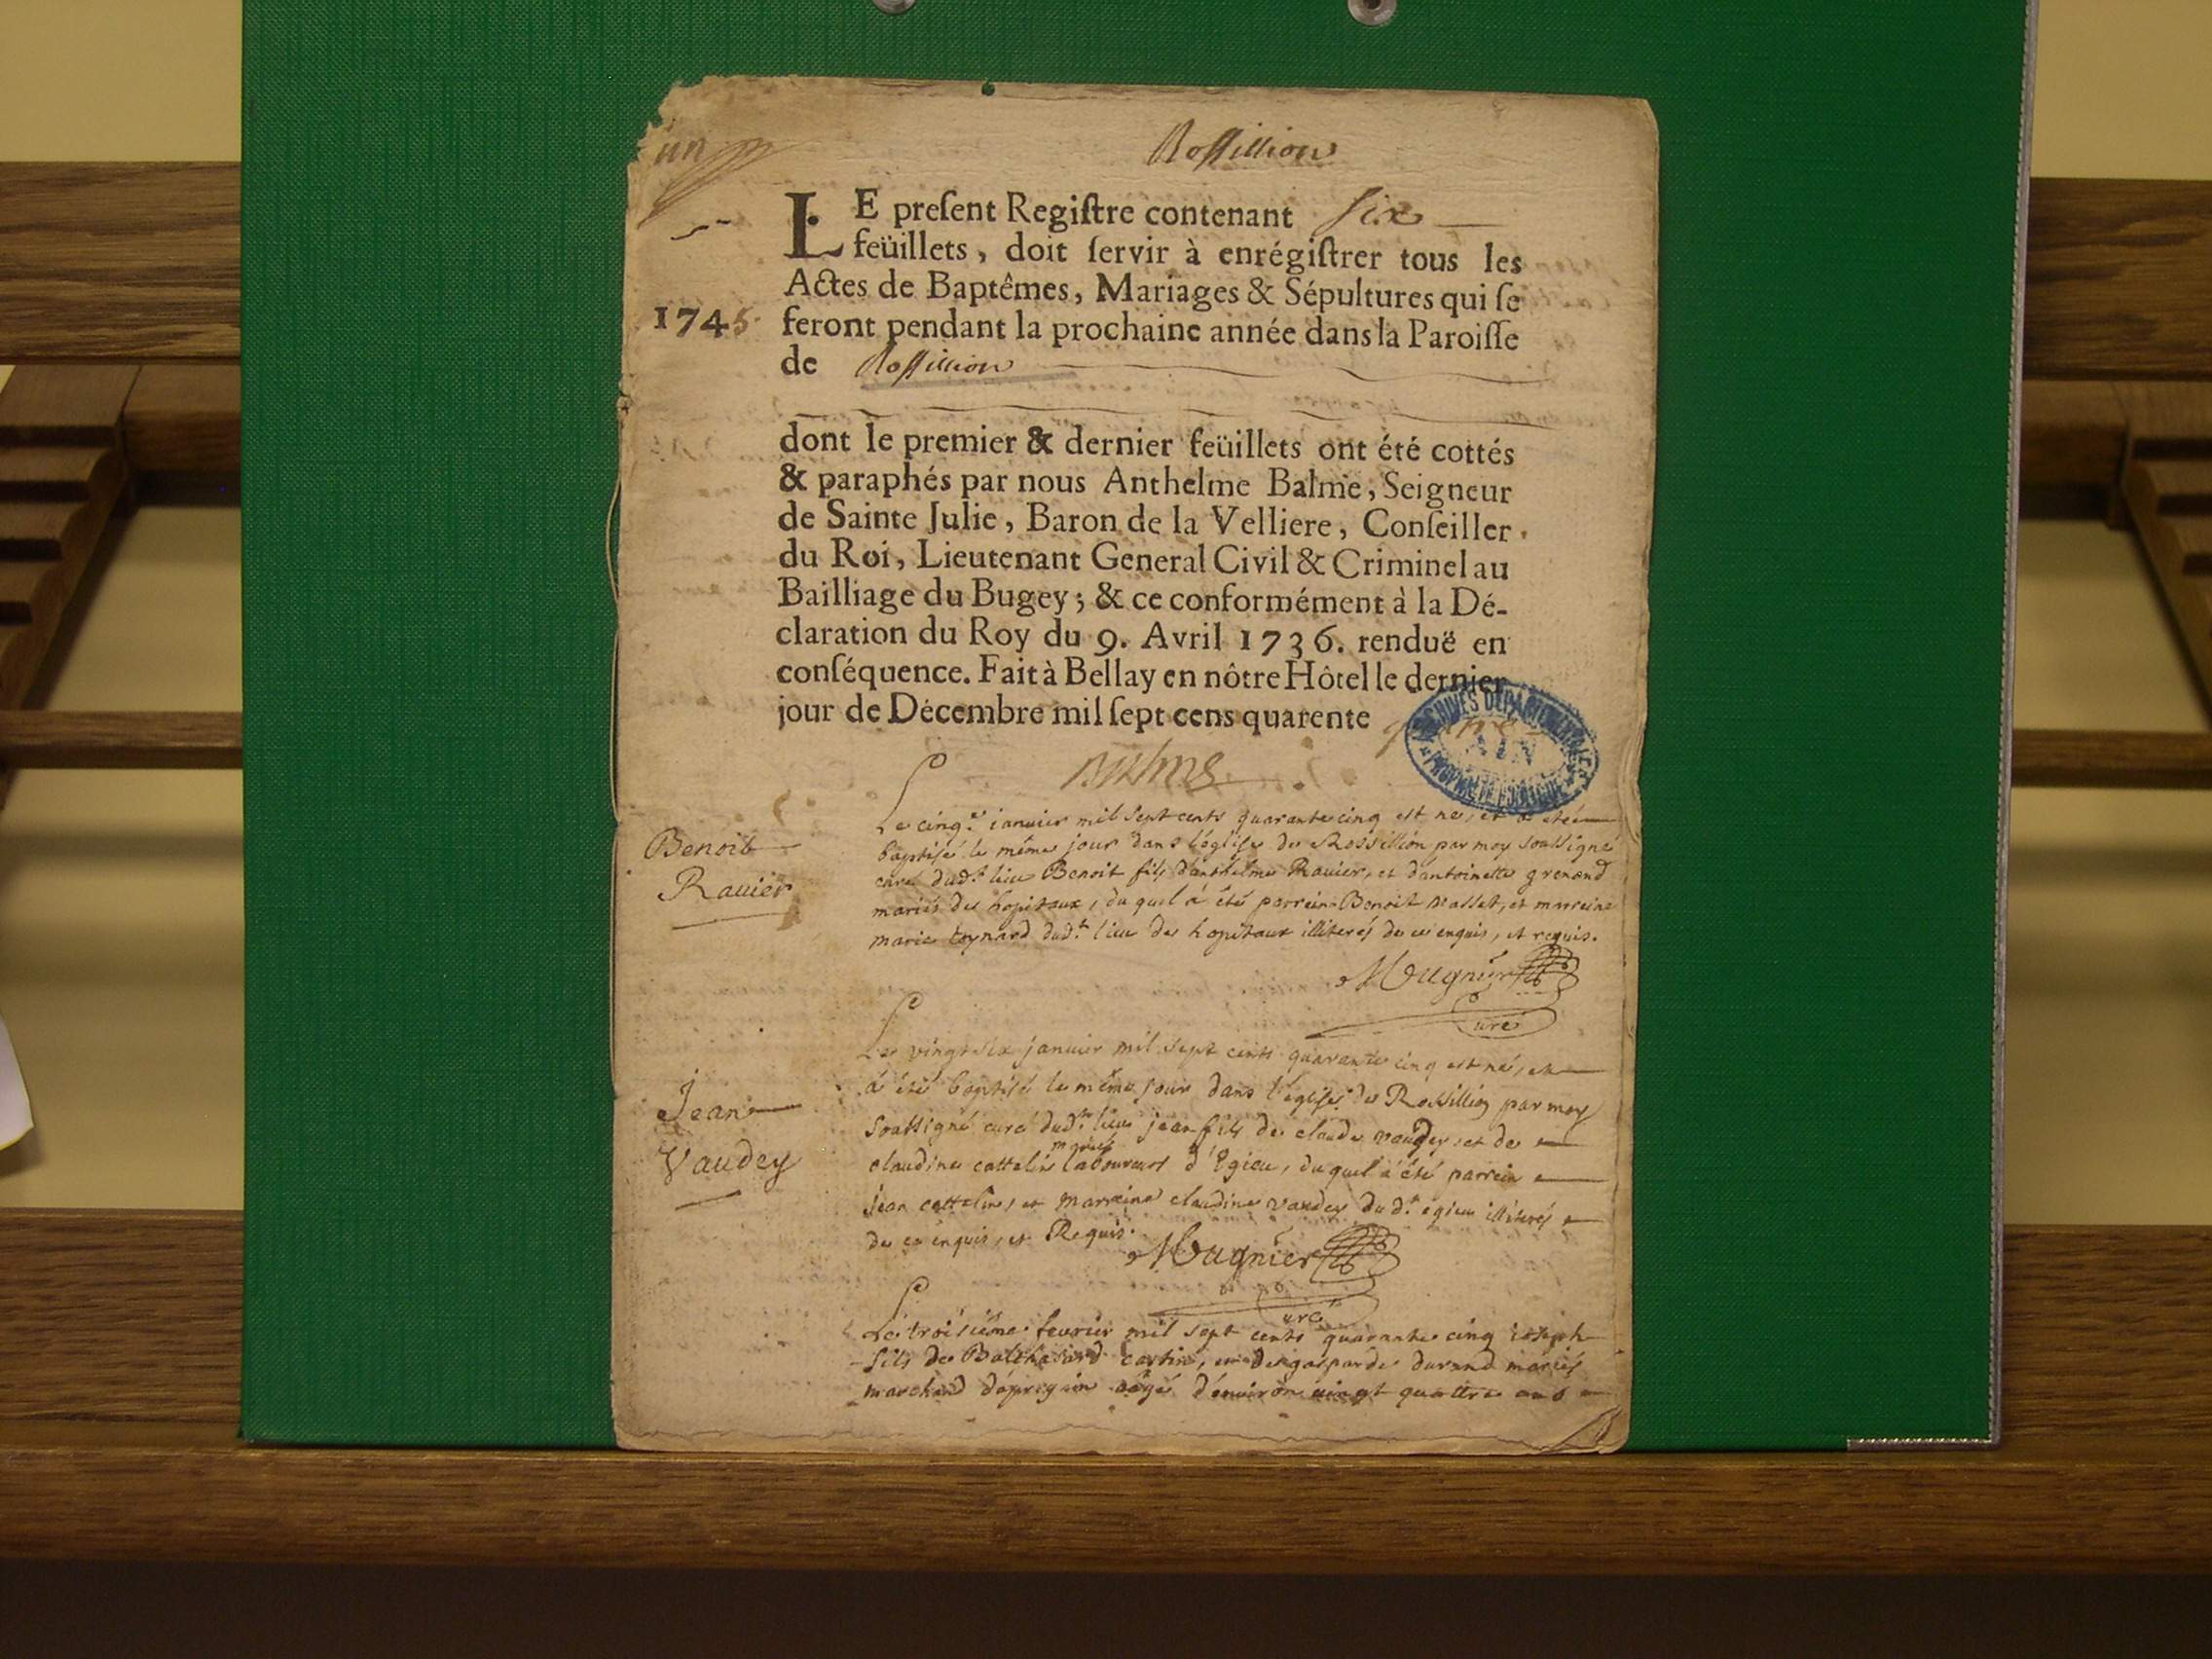 un
Rossillion
LE preſent Regiſtre contenant six
feüillets, doit ſervir à enrégiſtrer tous les
Actes de Baptêmes, Mariages & Sépultures qui ſe
1745. feront pendant la prochaine année dans la Paroiſſe
de Rossillion
dont le premier & dernier feüillets ont été cottés
& paraphés par nous Anthelme Balme, Seigneur
de Sainte Julie, Baron de la Velliere, Conſeiller
du Roi, Lieutenant General Civil & Criminel au
Bailliage du Bugey; & ce conformément à la Dé-
claration du Roy du 9. Avril 1736. renduë en
conſéquence. Fait à Bellay en nôtre Hôtel le dernier
jour de Décembre mil ſept cens quarente
ARCHIVES DÉPARTEMENTALES
AIN
PROPRIÉTÉ PUBLIQUE
Balme
Benoit
Rauier
Le cinq.e ianuier mil sept cents quarante cinq est ne, et a eté
baptisé le même jour dans l'église de Rossillion par moy soussigné
curé dud.t lieu Benoit fils d'anthelme Rauier, et d'antoinette grenand
mariés des hopitaux, du quel à été parrein Benoit vasset, et marreine
marie dud.t lieu des hopitaux illiterés de ce enquis, et requis.
Mugnier
Curé
Jean
Vaudey
Le vingt six januier mil sept cents quarante cinq est né, et
à été baptisé le même jour dans l'église de Rossillion par moy
soussigné curé dud.t lieu jean fils de claude vaudey, et de
claudine cattelin mariés laboureurs d'Egieu, du quel à été parrein
jean cattelin, et marreine claudine vaudey du d.t egieu illiterés
de ce enquis, et Requis.
Mugnier
Curé
Le troisiéme feurier mil sept cents quarante cinq ioseph
fils de Balthasard et de gasparde durand mariés
marchand agé d'enuiron uingt quattre ans